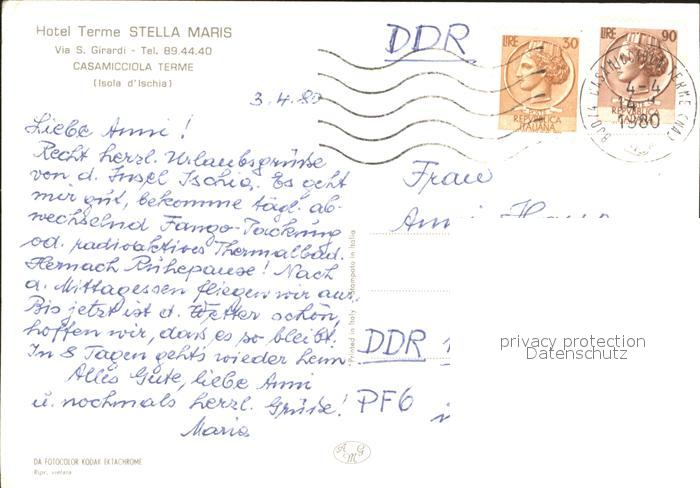 Hotel Terme STELLA MARIS
Via S. Girardi - Tel. 89.44.40
CASAMICCIOLA TERME
(Isola d'Ischia)
3.4.80
Liebe Anni!
Recht herzl. Urlaubsgrüsse
von d. Insel Ischia. Es geht
mir gut, bekomme tägl. ab-
wechselnd Fango-Packung
od. radioaktives Thermalbad.
Hernach Ruhepause! Nach
d. Mittagessen fliegen wir aus.
Bis jetzt ist d. Wetter schön,
hoffen wir, dass es so bleibt.
In 8 Tagen geht's wieder heim
Alles Gute, liebe Anni
u. nochmals herzl. Grüsse!
Maria
DA FOTOCOLOR KODAK EKTACHROME
Ripr. vietata
Printed in Italy - Stampato in Italia
DDR
LIRE 30
REPVBBLICA
ITALIANA
LIRE 90
REPVBBLICA
ITALIANA
80074 CASAMICCIOLA TERME (NA)
4-4
1980
Frau
Anni
DDR
PF6
privacy protection
Datenschutz